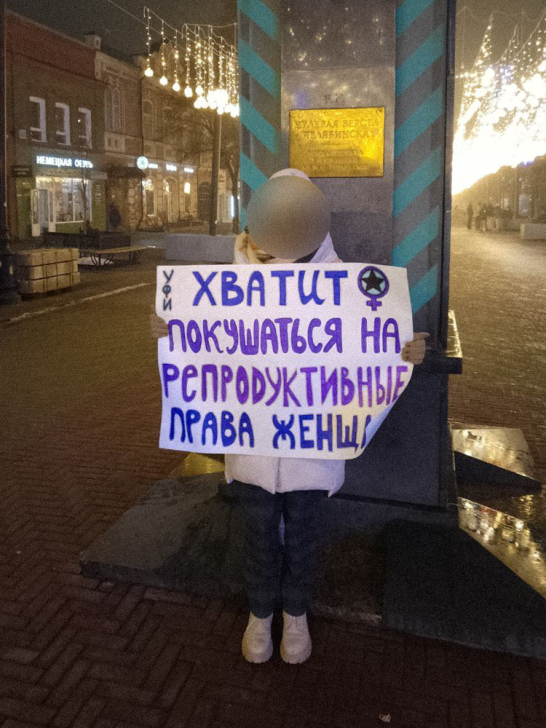 НЕМЕЦКАЯ ОБУВЬ
НУЛЕВАЯ ВЕРСТА
ЧЕЛЯБИНСКА
УФИ
ХВАТИТ
ПОКУШАТЬСЯ НА
РЕПРОДУКТИВНЫЕ
ПРАВА ЖЕНЩ